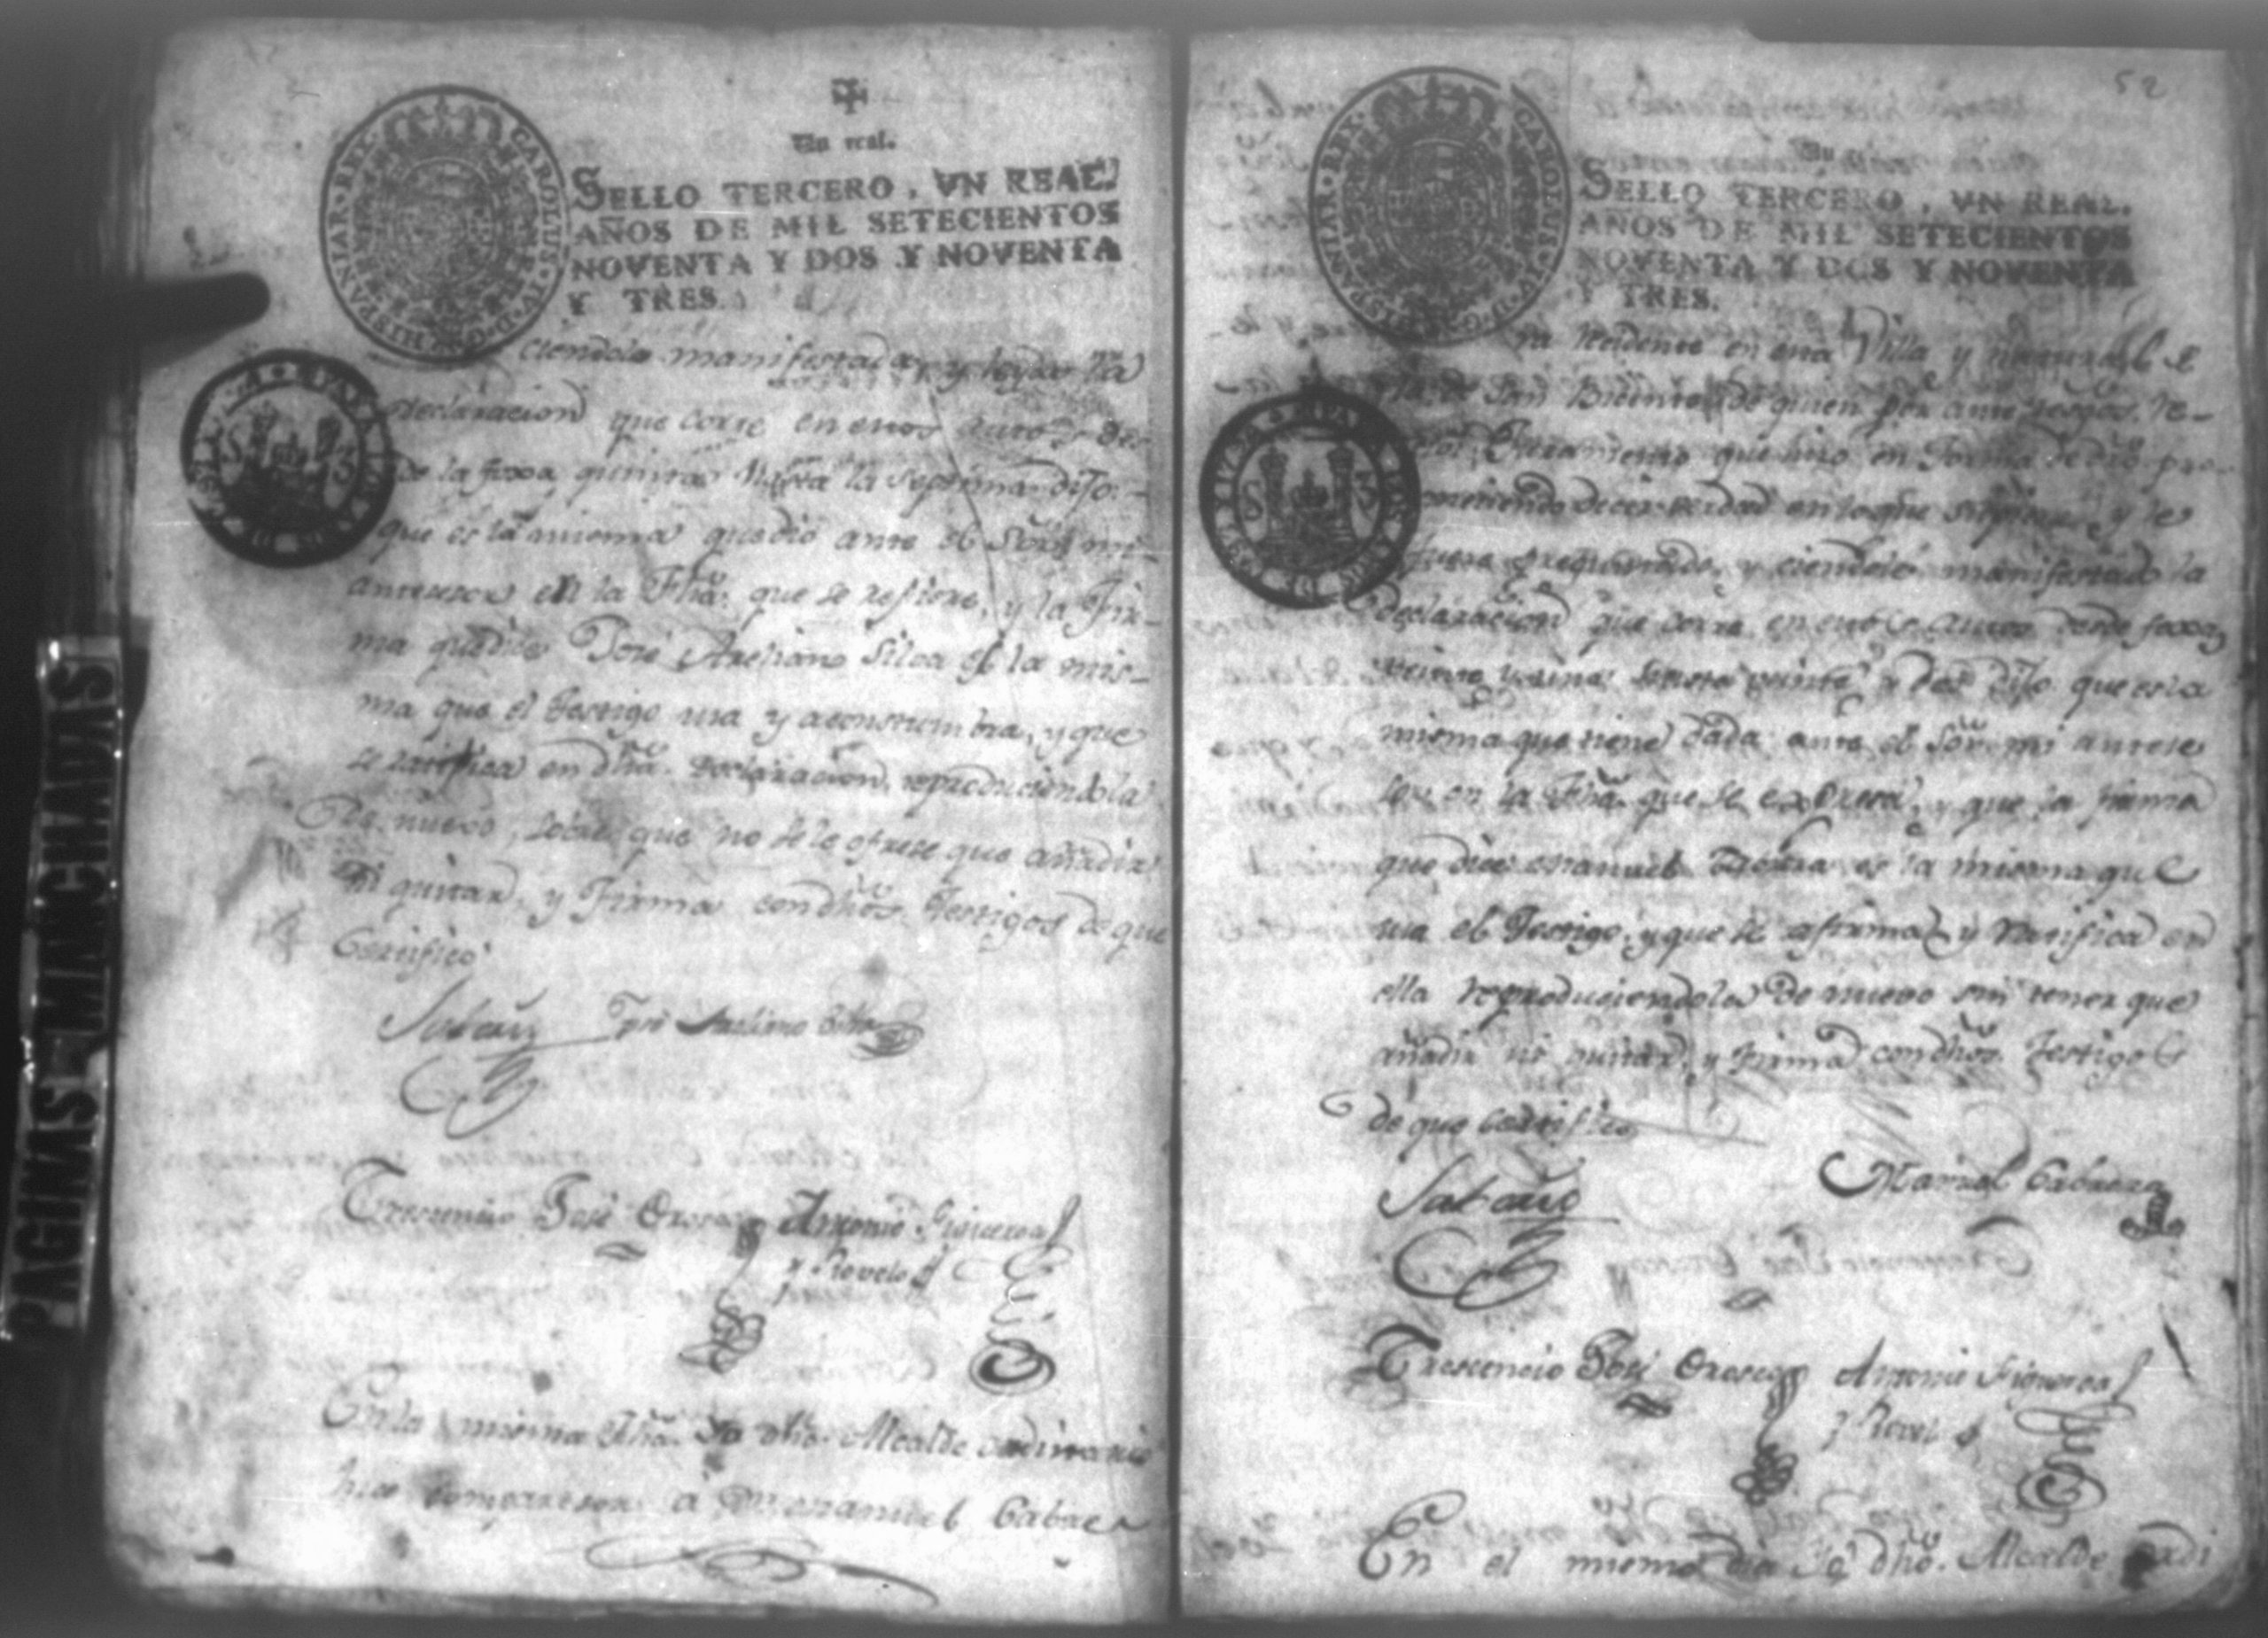 Un real.
SELLO TERCERO, UN REAL.
AÑOS DE MIL SETECIENTOS
NOVENTA Y DOS Y NOVENTA
Y TRES.
HISPANIAR·REX· CAROLUS·IV·D·G·
ciendole manifestada, y leyda la
declaracion que corre en estos autos des-
de la foxa quinta hasta la septima dijo:
que es la misma que dio ante el Sõr mi
antecesor en la fhã. que se refiere, y la fir-
ma que dice José Anselmo Silva es la mis-
ma que el testigo usa y acostumbra, y que
se ratifica en dhã. declaracion, reproduciendola
de nuevo, sobre que no se le ofrese que añadir
ni quitar, y firma con dhõs. testigos de que
Certifico
José Anselmo Silva
Cresencio José Orosco Antonio Figueroa
y Rovelo
En la misma fhã. Yo dhõ. Alcalde ordinario
hise comparecer a Dn Manuel Cabre
52
Un
SELLO TERCERO, UN REAL.
AÑOS DE MIL SETECIENTOS
NOVENTA Y DOS Y NOVENTA
Y TRES.
HISPANIAR·REX· CAROLUS·IV·D·G·
ra Residente en esta Villa y natural de
la de San Bicente de quien por ante testigos re-
juramento que hizo en forma de dro. pro-
metiendo decir verdad en lo que supiere y le
fuere preguntado, y ciendole manifestado la
declaracion que corre en estos autos desde foxas
veinte y una hasta veinte y dos dijo que es la
misma que tiene dada ante el Sõr mi antese
sor en la fhã. que se expresa, y que la firma
que dice Manuel Cabrera es la misma que
usa el testigo, y que se afirma, y ratifica en
ella reproduciendola de nuevo sin tener que
añadir ni quitar, y firma con dhõs. testigos
de que certifico
Manuel Cabrera
Cresencio José Orosco Antonio Figueroa
y Rovelo
En el mismo dia Yo dhõ. Alcalde ordi
PAGINAS MANCHADAS